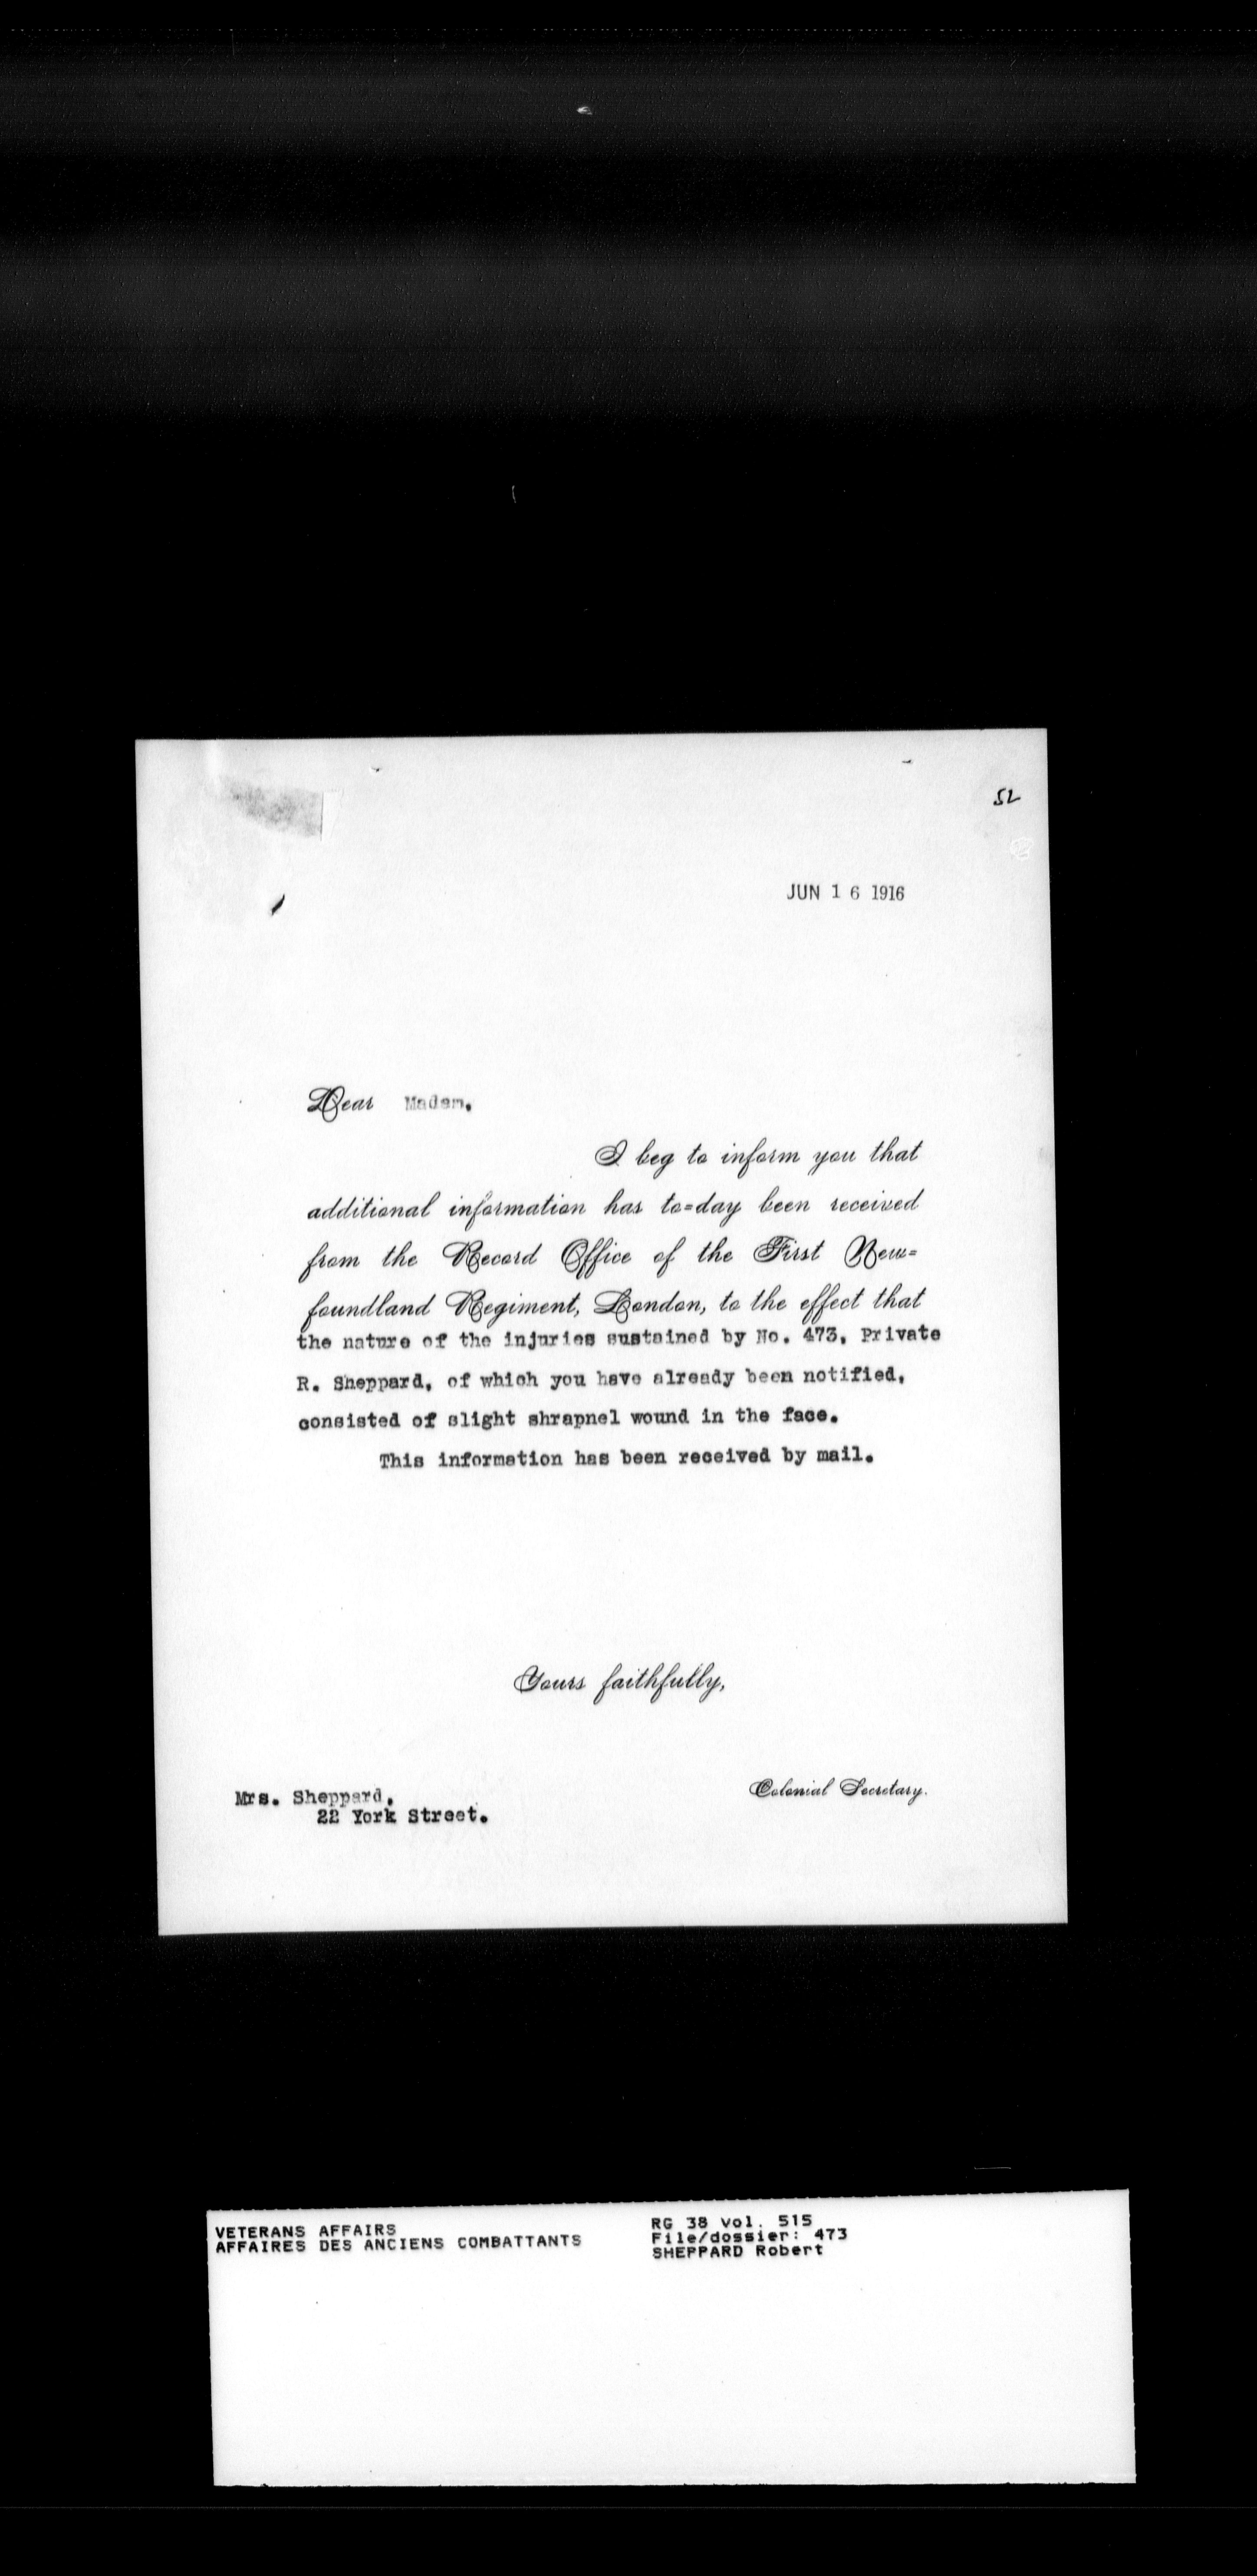 52
JUN 16 1916
Dear Madam,
I beg to inform you that
additional information has to=day been received
from the Record Office of the First New=
foundland Regiment, London, to the effect that
the nature of the injuries sustained by No. 473, Private
R. Sheppard, of which you have already been notified,
consisted of slight shrapnel wound in the face.
This information has been received by mail.
Yours faithfully,
Colonial Secretary.
Mrs. Sheppard,
22 York Street.
VETERANS AFFAIRS
AFFAIRES DES ANCIENS COMBATTANTS
RG 38 Vol. 515
File/dossier: 473
SHEPPARD Robert